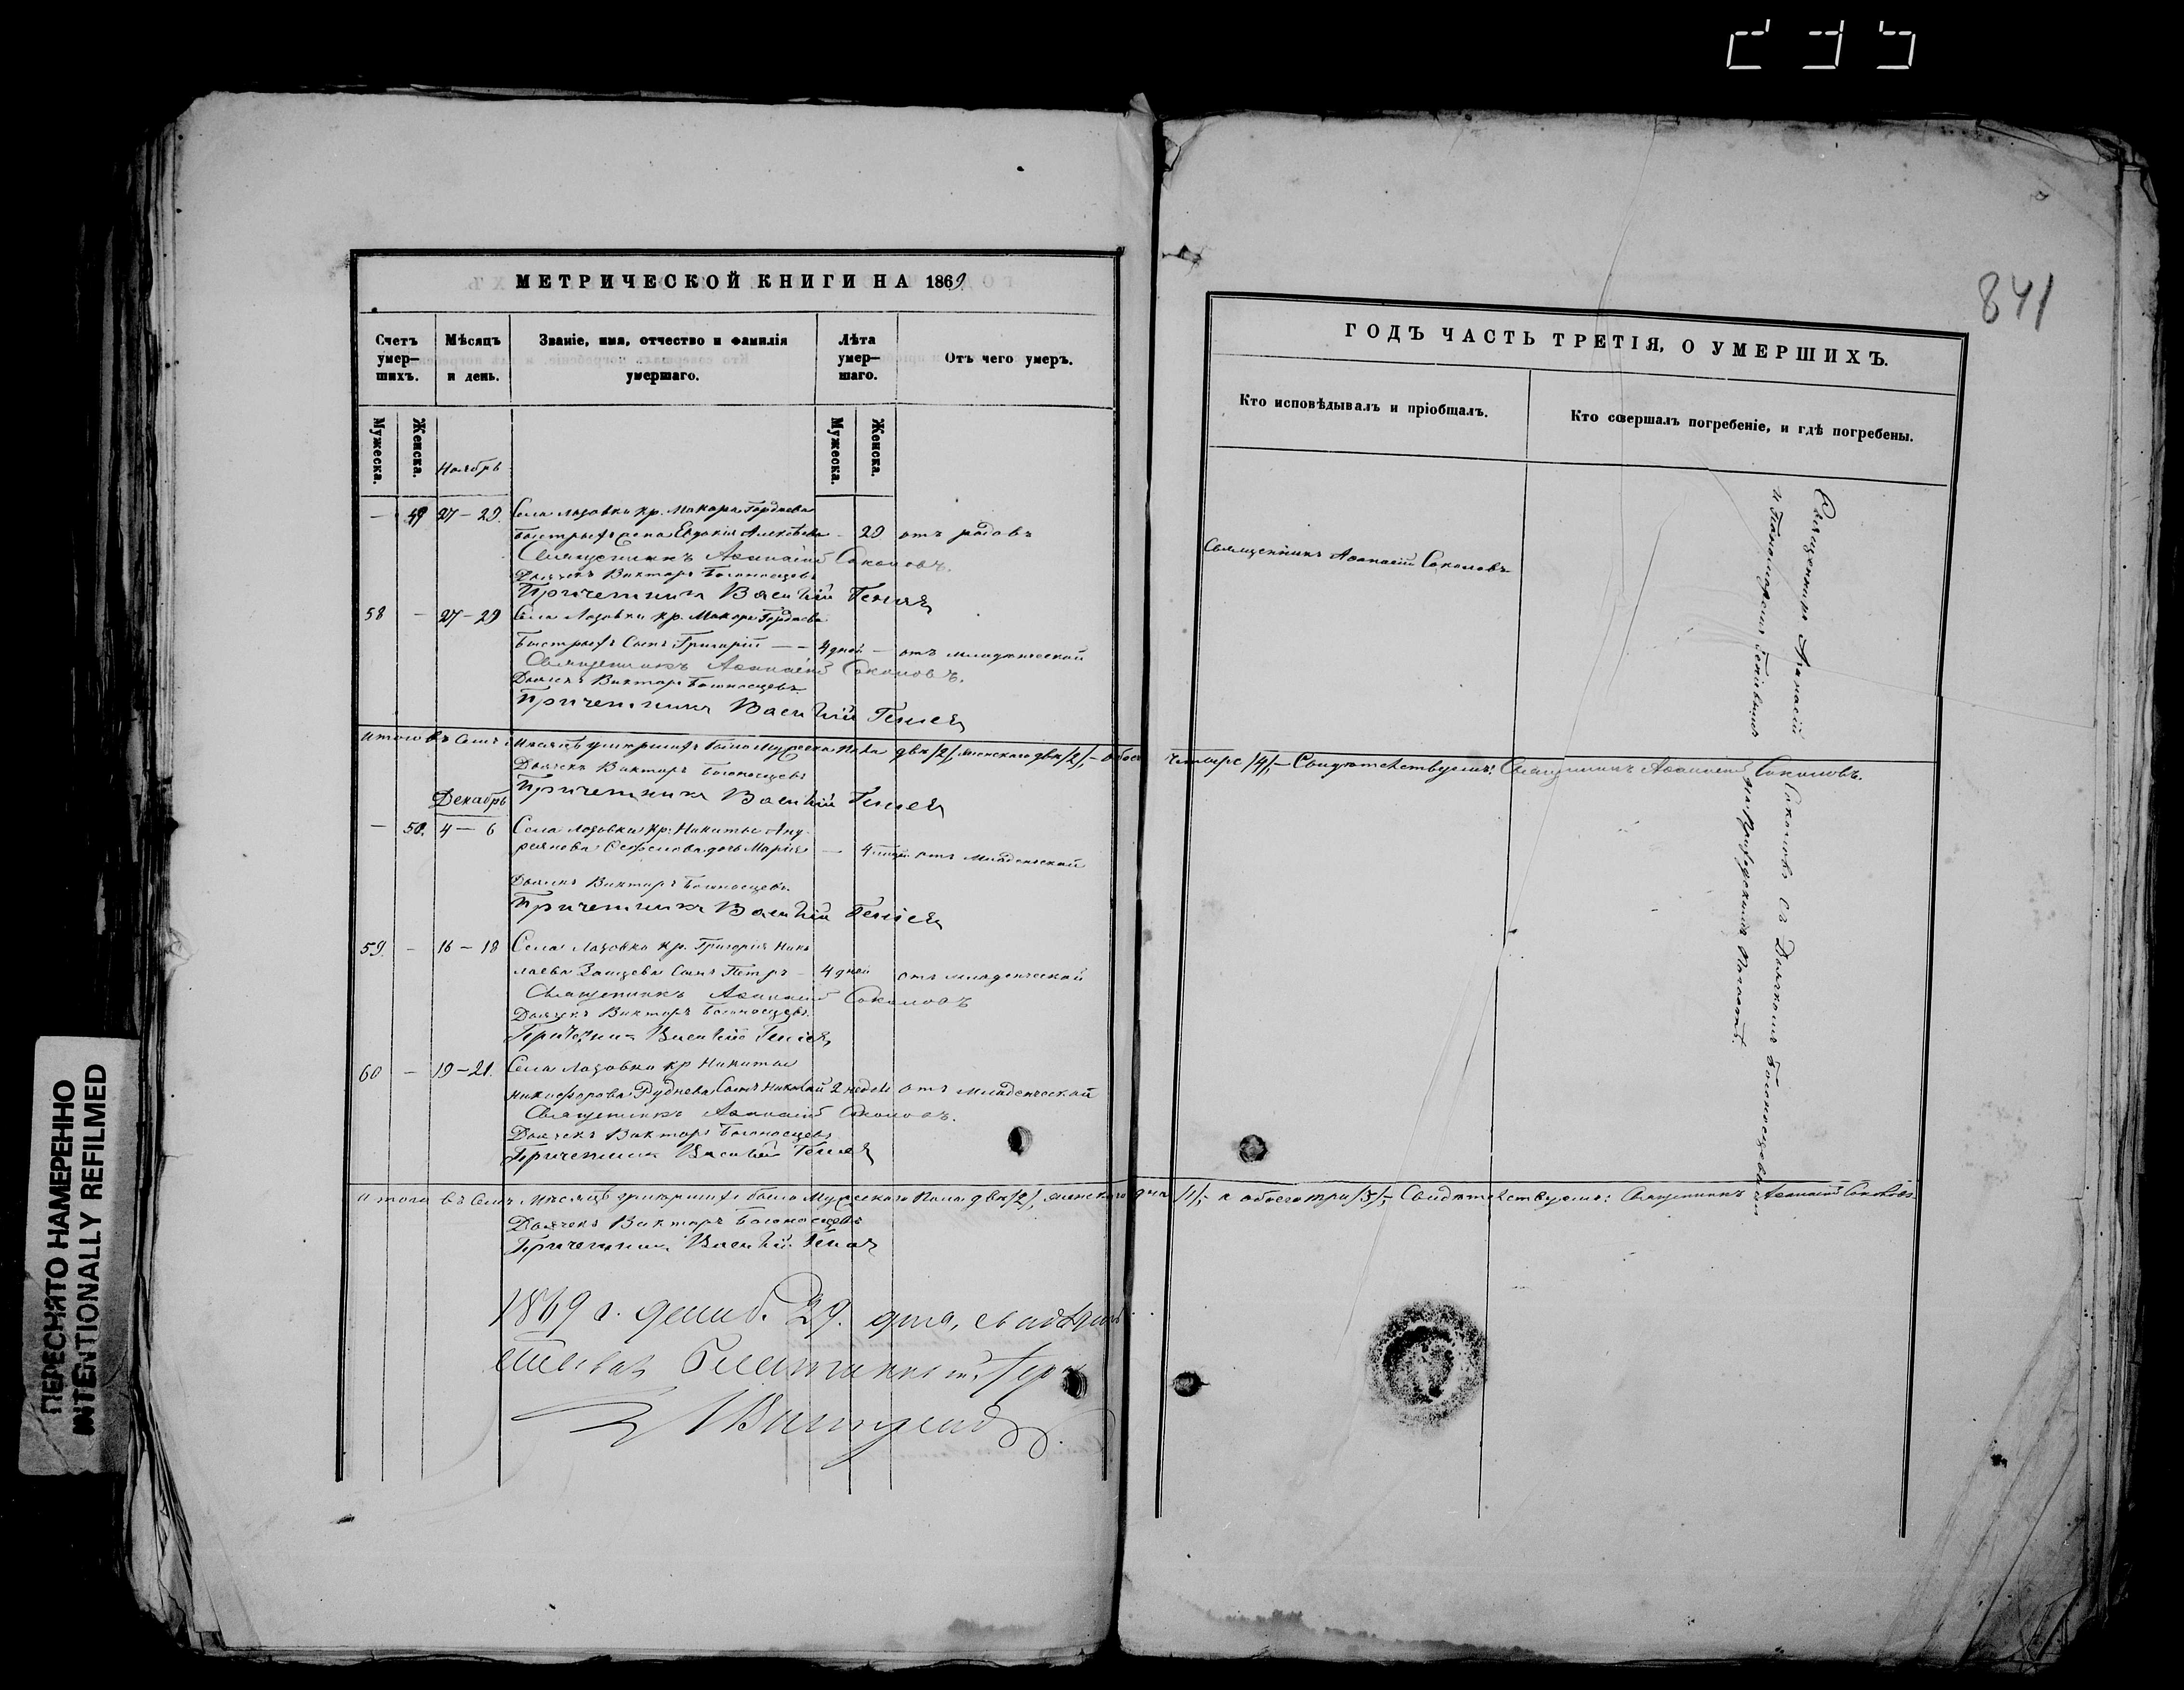 235
841
МЕТРИЧЕСКОЙ КНИГИ НА 1869
Счетъ умер–шихъ.
Мѣсяцъ и день.
Званіе, имя, отчество и фамилія умершаго.
Лѣта умер–шаго.
Отъ чего умеръ.
Мужеска.
Женска.
Мужеска.
Женска.
Ноябрь
— 49 27–29. Села Лозовки кр. Макара Гордѣева
Быстрыхъ жена Евдокія Алексѣева – 29 отъ родовъ
Священникъ Аѳанасій Соколовъ.
Дьячекъ Викторъ Богоносцевъ
Причетникъ Василій
58 – 27–29 Села Лозовки кр. Макара Гордѣева
Быстрыхъ сынъ Григорій – – 4 дней – отъ младенческой
Священникъ Аѳанасій Соколовъ.
Дьячекъ Викторъ Богоносцевъ
Причетникъ Василій
Итого въ семъ мѣсяцѣ умершихъ было мужеска пола два /2/, женскаго два /2/, – обоего четыре /4/, – Свидѣтельствуемъ: Священникъ Аѳанасій Соколовъ.
Дьячекъ Викторъ Богоносцевъ
Причетникъ Василій
Декабрь
— 50. 4 – 6 Села Лозовки кр. Никиты Анд-
реянова дочь Марія – 4 отъ младенческой
Дьячекъ Викторъ Богоносцевъ
Причетникъ Василій
59. – 16 – 18 Села Лозовки кр. Григорія Нико
лаева Зайцева сынъ Петръ – 4 дней отъ младенческой
Священникъ Аѳанасій Соколовъ
Дьячекъ Викторъ Богоносцевъ.
Василій
60 – 19–21. Села Лозовки кр Никиты
Никифорова Руднева сынъ Николай 2 недѣли отъ младенческой
Священникъ Аѳанасій Соколовъ.
Дьячекъ Викторъ Богоносцевъ
Причетникъ Василій
Итого въ семъ мѣсяцѣ умершихъ было мужескаго пола два /2/, женскаго одна /1/, – а обоего три /3/, – Свидѣтельствуемъ: Священникъ Аѳанасій Соколовъ.
Дьячекъ Викторъ Богоносцевъ
Причетникъ Василій
1869 г. декаб. 29. дня,
ГОДЪ ЧАСТЬ ТРЕТІЯ, О УМЕРШИХЪ.
Кто исповѣдывалъ и пріобщалъ.
Кто совершалъ погребеніе, и гдѣ погребены.
Священникъ Аѳанасій Соколовъ
Священникъ Аѳанасій Соколовъ съ Дьячкомъ Богоносцевымъ
и Пономаремъ на Приходскомъ погостѣ.
ПЕРЕСНЯТО НАМЕРЕННО
INTENTIONALLY REFILMED